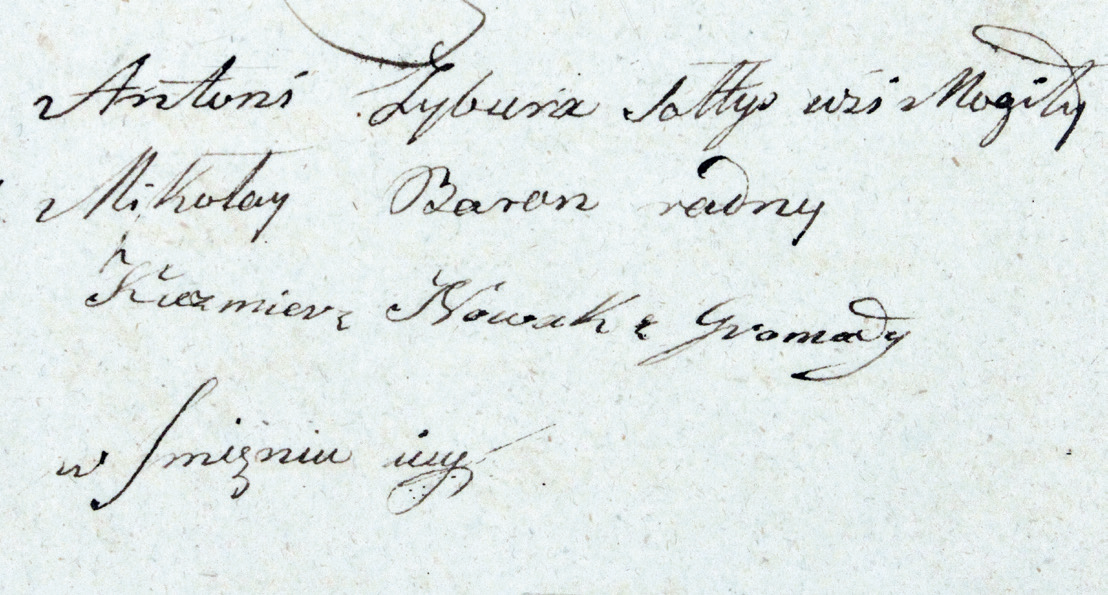 Antoni Zybura Sołtys wsi Mogiły
Mikołay Baron radny
Kazmierz Nowak z Gromady
w Jmięniu icy